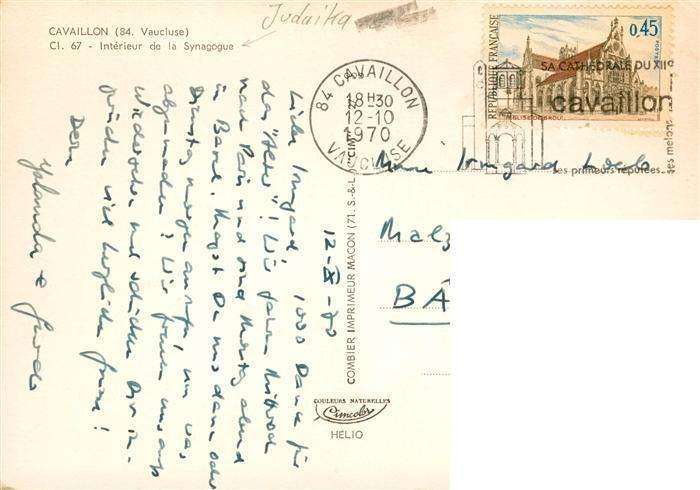 CAVAILLON (84. Vaucluse)
Cl. 67 - Intérieur de la Synagogue
Judaika
84 CAVAILLON
18H30
12-10
1970
VAUCLUSE
REPUBLIQUE FRANÇAISE
0,45
EGLISE DE BROU
SA CATHÉDRALE DU XIIe
cavaillon
ses melons
ses primeurs réputées
Irmgard
Malz
BÂ
12-X-70
Liebe Irmgard, 1000 Dank für
das "Herz"! Wir fahren Mittwoch
nach Paris und sind abend
in Basel. Magst Du uns dann oder
Dienstag morgen anrufen, um was
abzumachen? Wir freuen uns aufs
Wiedersehen und schicken Dir in-
zwischen viel herzliche Grüsse!
Dein
Yolanda e
COMBIER IMPRIMEUR MACON (71. S.-&-L.
COULEURS NATURELLES
Cimcolor
HELIO